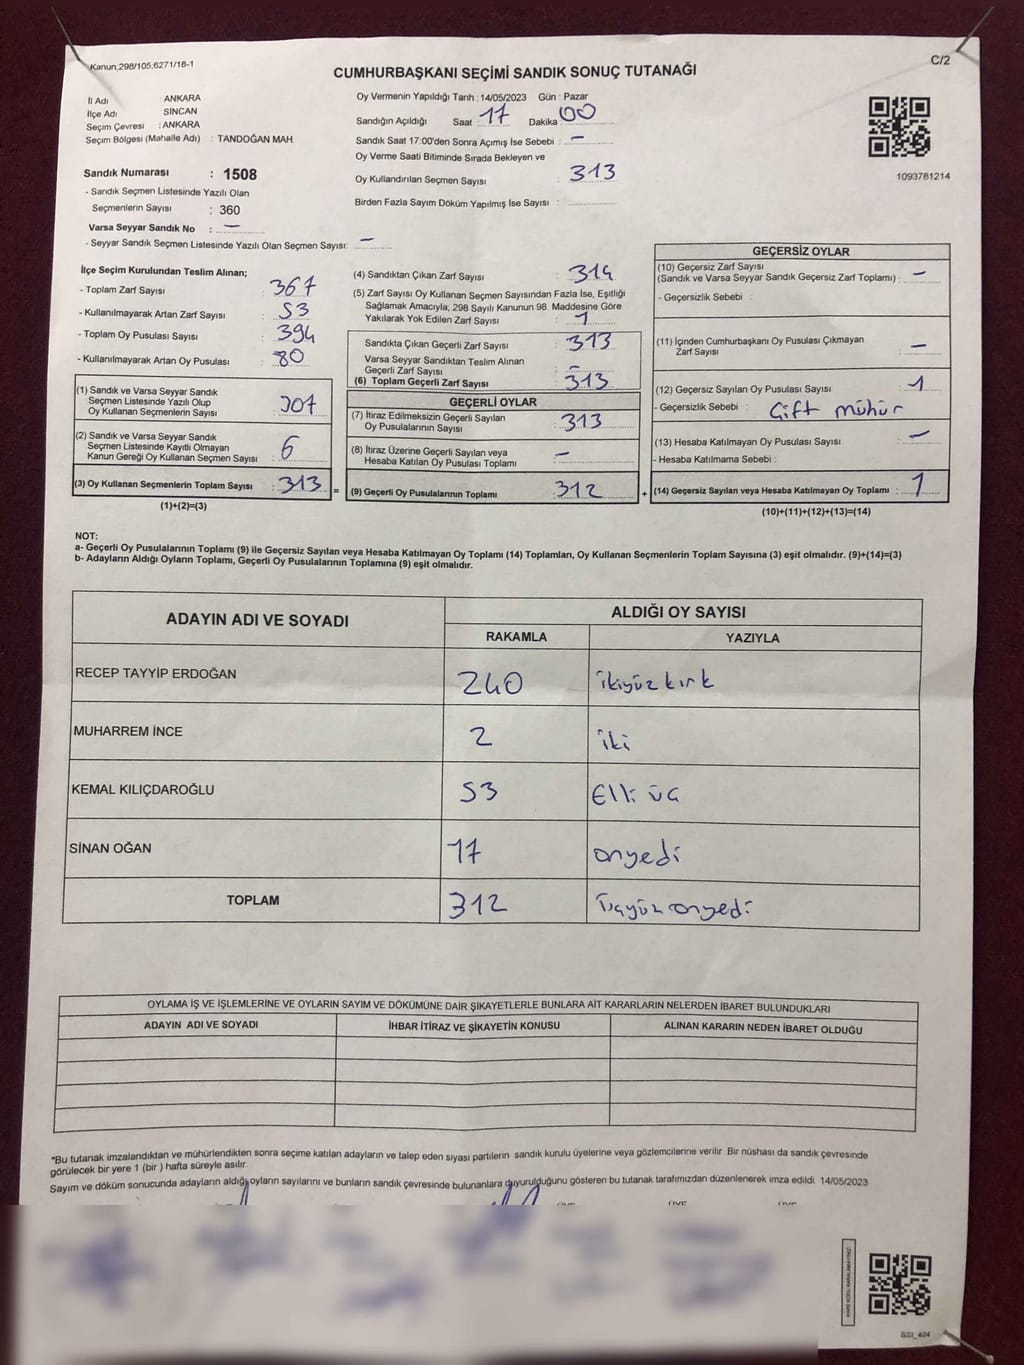 Kanun;298/105,6271/18-1
C/2
CUMHURBAŞKANI SEÇİMİ SANDIK SONUÇ TUTANAĞI
İl Adı ANKARA
İlçe Adı SİNCAN
Seçim Çevresi : ANKARA
Seçim Bölgesi (Mahalle Adı) : TANDOĞAN MAH.
Sandık Numarası : 1508
- Sandık Seçmen Listesinde Yazılı Olan
Seçmenlerin Sayısı : 360
Varsa Seyyar Sandık No : –
- Seyyar Sandık Seçmen Listesinde Yazılı Olan Seçmen Sayısı: –
Oy Vermenin Yapıldığı Tarih :14/05/2023 Gün : Pazar
Sandığın Açıldığı Saat : 17 Dakika : 00
Sandık Saat 17:00'den Sonra Açımış İse Sebebi : –
Oy Verme Saati Bitiminde Sırada Bekleyen ve
Oy Kullandırılan Seçmen Sayısı : 313
Birden Fazla Sayım Döküm Yapılmış İse Sayısı :
1093781214
İlçe Seçim Kurulundan Teslim Alınan;
- Toplam Zarf Sayısı : 367
- Kullanılmayarak Artan Zarf Sayısı : 53
- Toplam Oy Pusulası Sayısı : 394
- Kullanılmayarak Artan Oy Pusulası : 80
(1) Sandık ve Varsa Seyyar Sandık
Seçmen Listesinde Yazılı Olup
Oy Kullanan Seçmenlerin Sayısı : 307
(2) Sandık ve Varsa Seyyar Sandık
Seçmen Listesinde Kayıtlı Olmayan
Kanun Gereği Oy Kullanan Seçmen Sayısı : 6
(3) Oy Kullanan Seçmenlerin Toplam Sayısı : 313
(1)+(2)=(3)
(4) Sandıktan Çıkan Zarf Sayısı : 314
(5) Zarf Sayısı Oy Kullanan Seçmen Sayısından Fazla İse, Eşitliği
Sağlamak Amacıyla, 298 Sayılı Kanunun 98. Maddesine Göre
Yakılarak Yok Edilen Zarf Sayısı : 1
Sandıkta Çıkan Geçerli Zarf Sayısı : 313
Varsa Seyyar Sandıktan Teslim Alınan
Geçerli Zarf Sayısı : –
(6) Toplam Geçerli Zarf Sayısı : 313
GEÇERLİ OYLAR
(7) İtiraz Edilmeksizin Geçerli Sayılan
Oy Pusulalarının Sayısı : 313
(8) İtiraz Üzerine Geçerli Sayılan veya
Hesaba Katılan Oy Pusulası Toplamı : –
= (9) Geçerli Oy Pusulalarının Toplamı : 312 +
GEÇERSİZ OYLAR
(10) Geçersiz Zarf Sayısı
(Sandık ve Varsa Seyyar Sandık Geçersiz Zarf Toplamı) : –
- Geçersizlik Sebebi :
(11) İçinden Cumhurbaşkanı Oy Pusulası Çıkmayan
Zarf Sayısı : –
(12) Geçersiz Sayılan Oy Pusulası Sayısı : 1
- Geçersizlik Sebebi : Çift mühür
(13) Hesaba Katılmayan Oy Pusulası Sayısı : –
- Hesaba Katılmama Sebebi :
(14) Geçersiz Sayılan veya Hesaba Katılmayan Oy Toplamı : 1
(10)+(11)+(12)+(13)=(14)
NOT:
a- Geçerli Oy Pusulalarının Toplamı (9) ile Geçersiz Sayılan veya Hesaba Katılmayan Oy Toplamı (14) Toplamları, Oy Kullanan Seçmenlerin Toplam Sayısına (3) eşit olmalıdır. (9)+(14)=(3)
b- Adayların Aldığı Oyların Toplamı, Geçerli Oy Pusulalarının Toplamına (9) eşit olmalıdır.
ADAYIN ADI VE SOYADI ALDIĞI OY SAYISI
RAKAMLA YAZIYLA
RECEP TAYYİP ERDOĞAN 240 ikiyüz kırk
MUHARREM İNCE 2 iki
KEMAL KILIÇDAROĞLU 53 Elli üç
SİNAN OĞAN 17 onyedi
TOPLAM 312 Üçyüz onyedi
OYLAMA İŞ VE İŞLEMLERİNE VE OYLARIN SAYIM VE DÖKÜMÜNE DAİR ŞİKAYETLERLE BUNLARA AİT KARARLARIN NELERDEN İBARET BULUNDUKLARI
ADAYIN ADI VE SOYADI İHBAR İTİRAZ VE ŞİKAYETİN KONUSU ALINAN KARARIN NEDEN İBARET OLDUĞU
*Bu tutanak imzalandıktan ve mühürlendikten sonra seçime katılan adayların ve talep eden siyasi partilerin sandık kurulu üyelerine veya gözlemcilerine verilir. Bir nüshası da sandık çevresinde
görülecek bir yere 1 (bir ) hafta süreyle asılır.
Sayım ve döküm sonucunda adayların aldığı oyların sayılarını ve bunların sandık çevresinde bulunanlara duyurulduğunu gösteren bu tutanak tarafımızdan düzenlenerek imza edildi. 14/05/2023
SSI_404